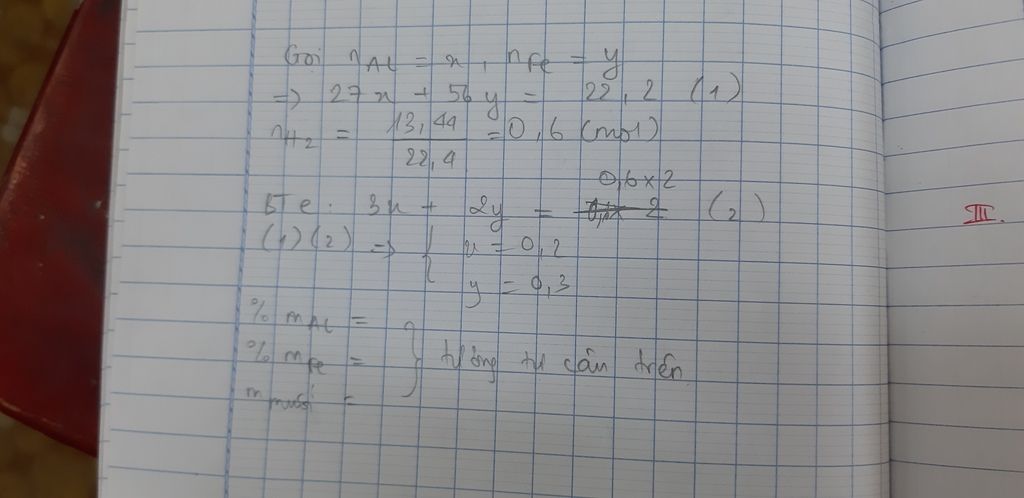 Gọi nAl = x, nFe = y
=> 27x + 56y = 22,2 (1)
nH2 = 13,44 / 22,4 = 0,6 (mol)
0,6 x 2
BTe: 3x + 2y = (2)
(1)(2) => { x = 0,2
y = 0,3
% mAl =
% mFe = } tương tự câu trên
m muối =
III.